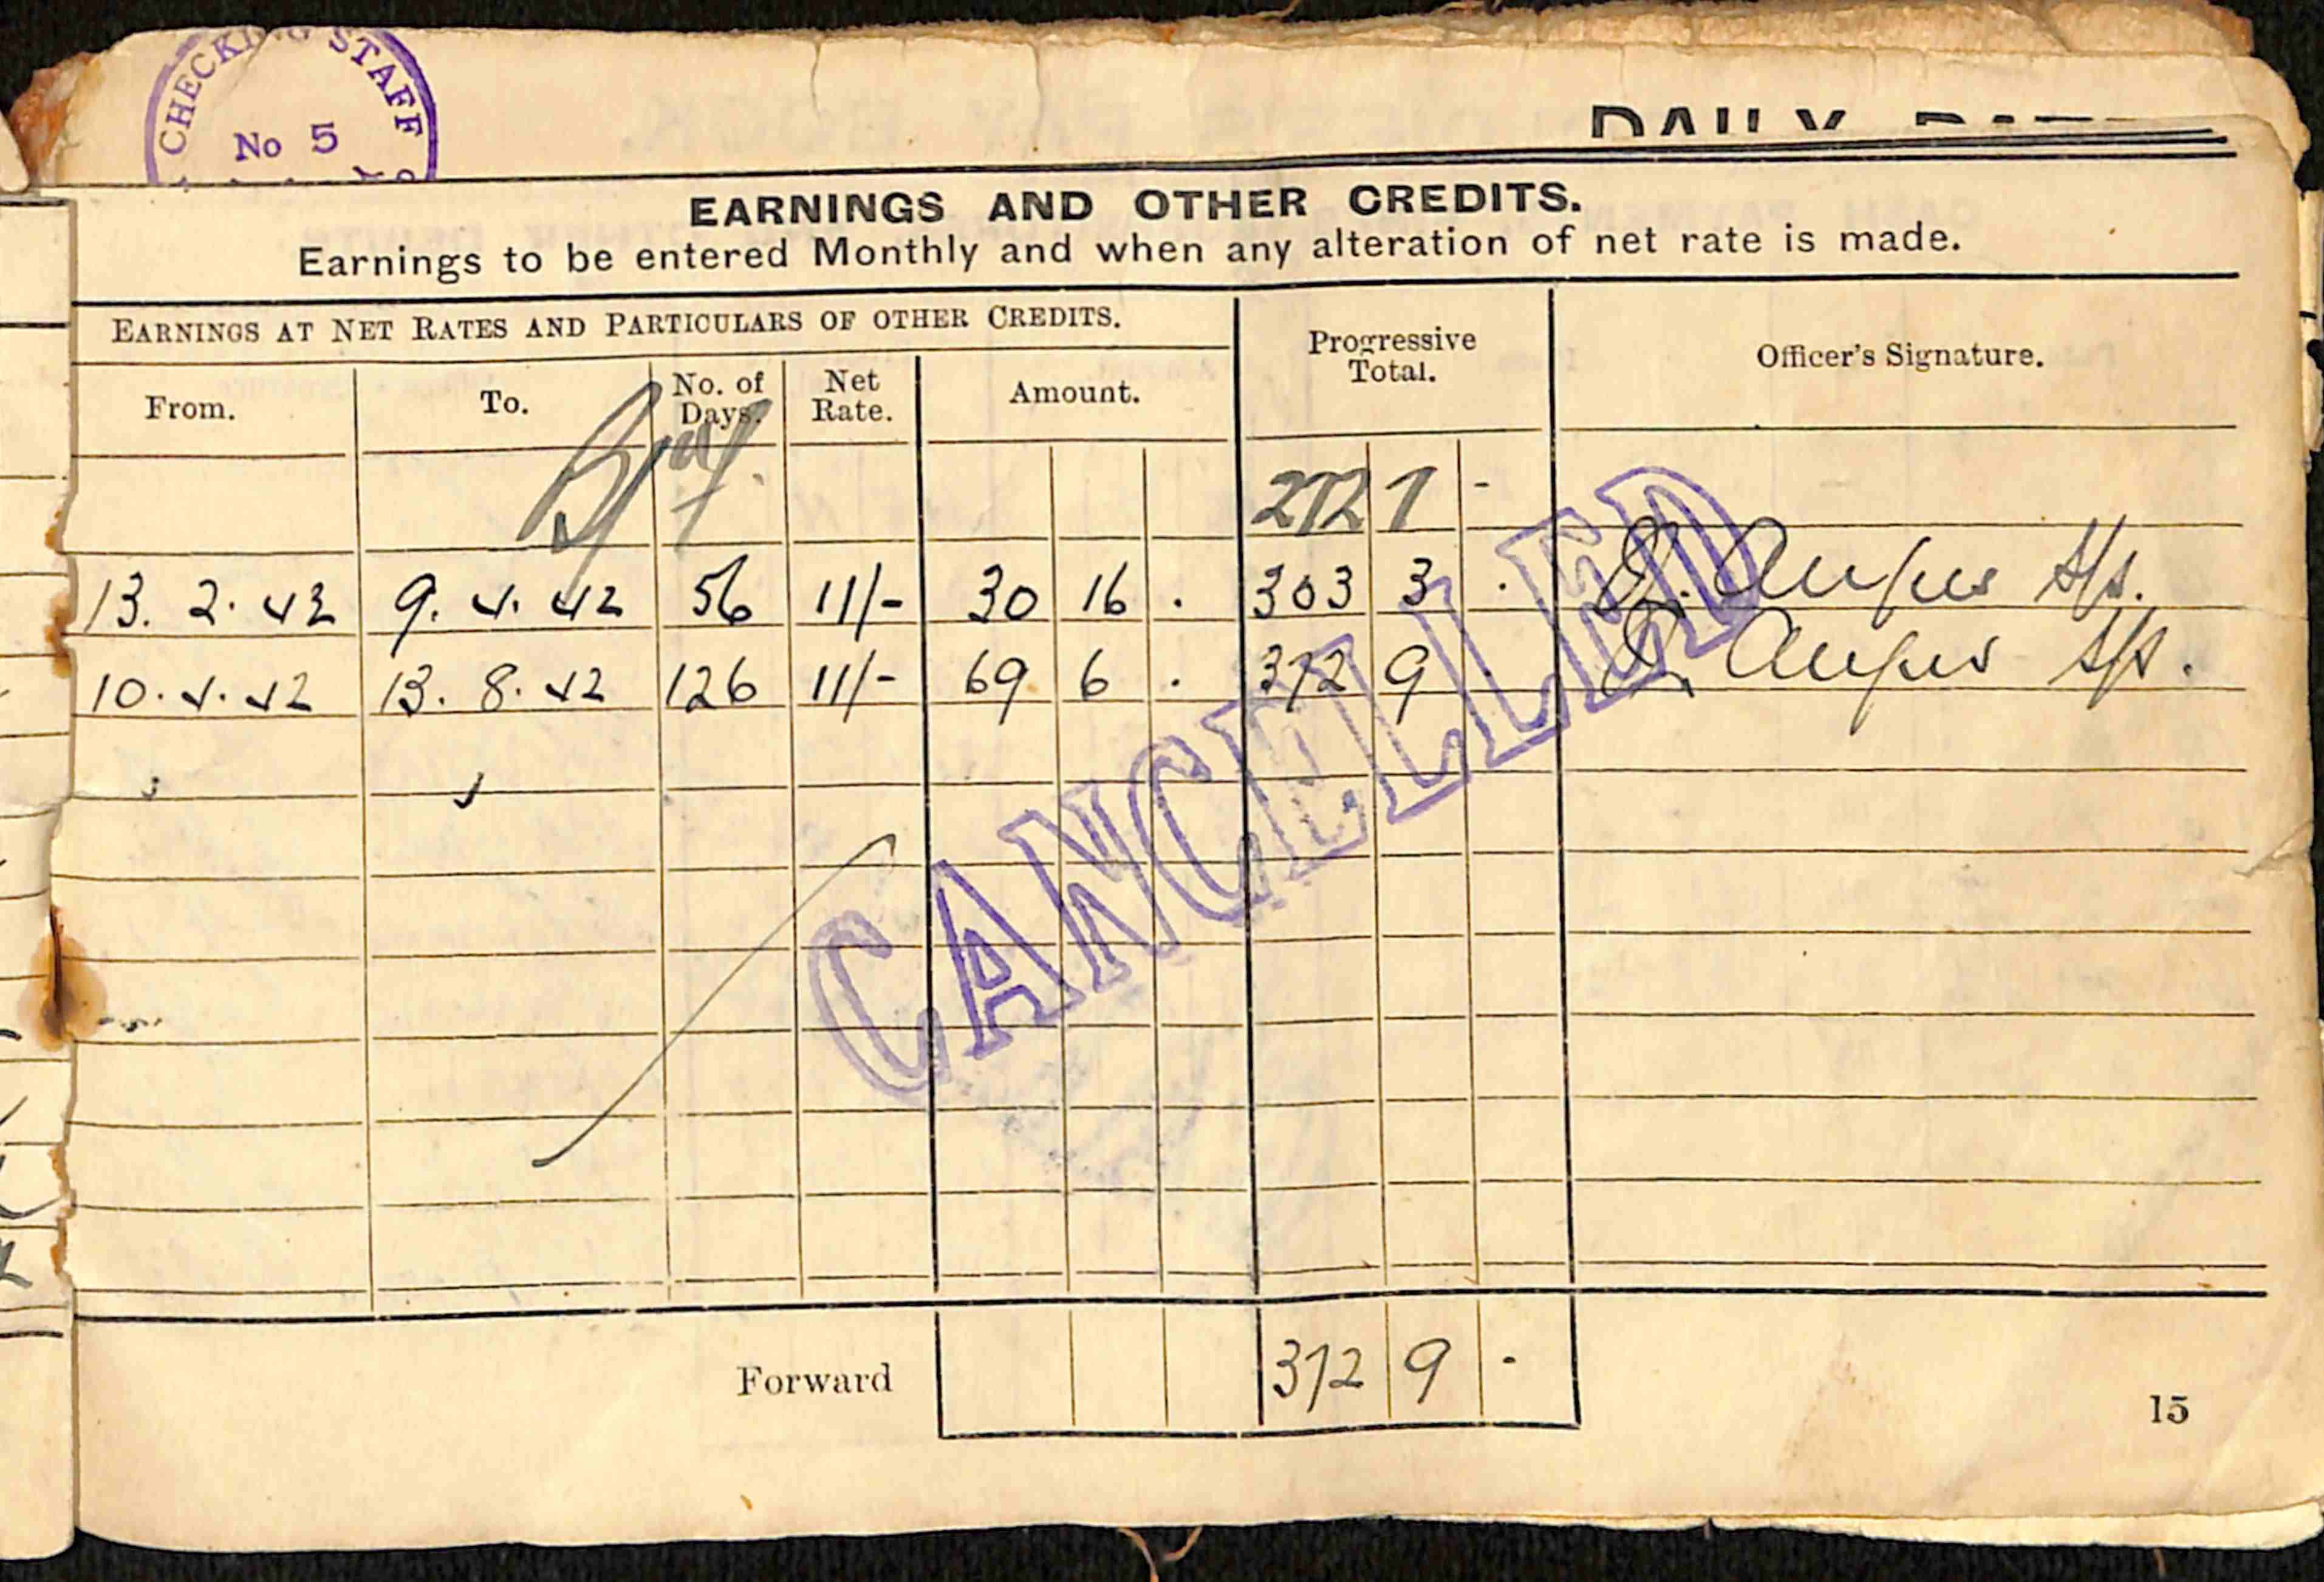 CHECKING STAFF
No 5
EARNINGS AND OTHER CREDITS.
Earnings to be entered Monthly and when any alteration of net rate is made.
EARNINGS AT NET RATES AND PARTICULARS OF OTHER CREDITS.
Progressive Total.
Officer's Signature.
From. To. No. of Days. Net Rate. Amount.
272 7 -
13. 2. 42 9. 4. 42 56 11/- 30 16 . 303 3 . Angus
10. 4. 42 13. 8. 42 126 11/- 69 6 . 372 9 Angus
CANCELLED
Forward 372 9 -
15